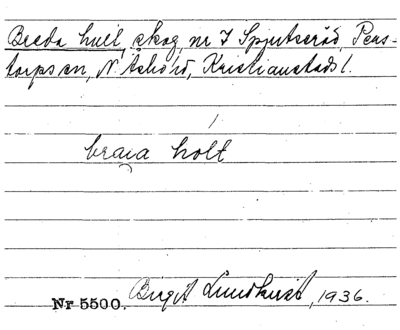 Breda hult, skog, nr 7 Spjutseröd, Pers-
torps sn, N. Åsbo hd, Kristianstads l.
braia holt
Nr 5500. Birgit Lundkvist, 1936.